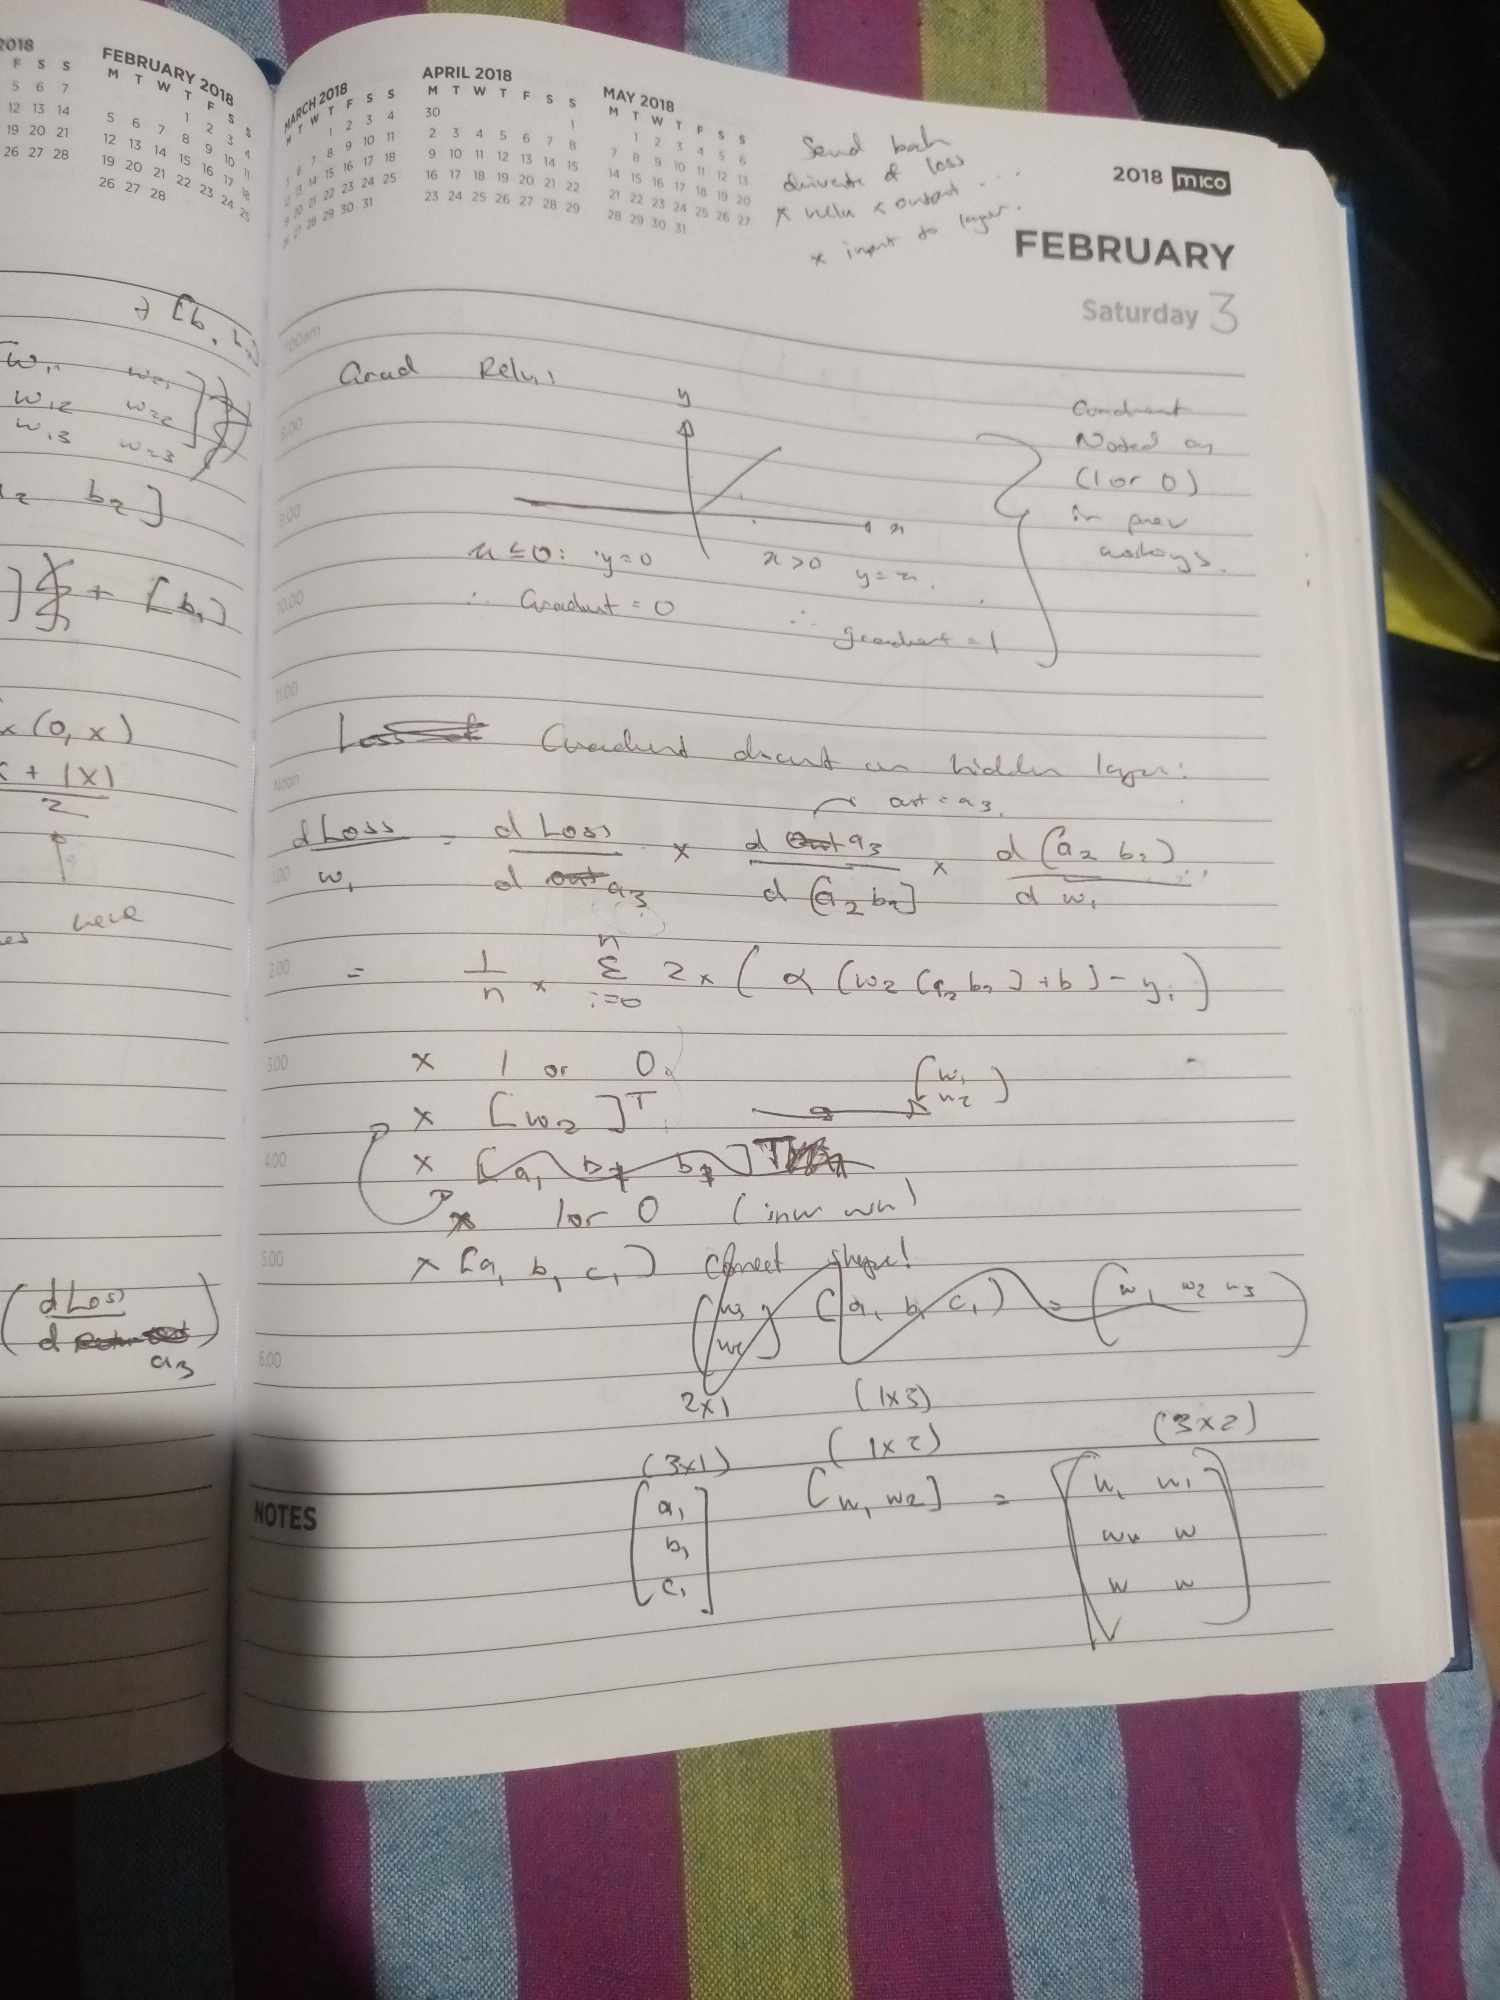 2018
F S S
5 6 7
12 13 14
19 20 21
26 27 28
FEBRUARY 2018
M T W T F S S
1 2 3 4
5 6 7 8 9 10 11
12 13 14 15 16 17 18
19 20 21 22 23 24 25
26 27 28
MARCH 2018
M T W T F S S
1 2 3 4
5 6 7 8 9 10 11
12 13 14 15 16 17 18
19 20 21 22 23 24 25
26 27 28 29 30 31
APRIL 2018
M T W T F S S
30 1
2 3 4 5 6 7 8
9 10 11 12 13 14 15
16 17 18 19 20 21 22
23 24 25 26 27 28 29
MAY 2018
M T W T F S S
1 2 3 4 5 6
7 8 9 10 11 12 13
14 15 16 17 18 19 20
21 22 23 24 25 26 27
28 29 30 31
Send back
of loss
x relu output ...
x input to layer.
2018 mico
FEBRUARY
Saturday 3
w11
w12 w22
w13 w23
b2 ]
] + [b1]
(0, x)
+ |x|
2
here
( dLoss )
d a3
7.00am
8.00
9.00
10.00
11.00
Noon
1.00
2.00
3.00
4.00
5.00
6.00
Grad Relu:
y
x
x ≤ 0: y=0 x>0 y=x.
∴ Gradient = 0 ∴ gradient = 1
Gradient
Noted as
(1 or 0)
in prev
workings.
Loss Gradient descent on hidden layer:
out = a3.
dLoss = d Loss x d out a3 x d [a2 b2]
w1 d out a3 d [a2 b2] d w1
= 1/n x Σ 2 x ( α (w2 [a2 b2] + b) - yi )
n
i=0
x 1 or 0.
x [w2]T → [w1 w2]
x [a1 b1 b1] T
x 1 or 0
x [a1 b1 c1] Correct shape!
[w1 w2] (a1 b1 c1) = (w1 w2 w3)
2x1 (1x3)
(3x1) (1x2) (3x2)
[a1 [w1 w2] = [w1 w1
b1 w w
c1] w w]
NOTES